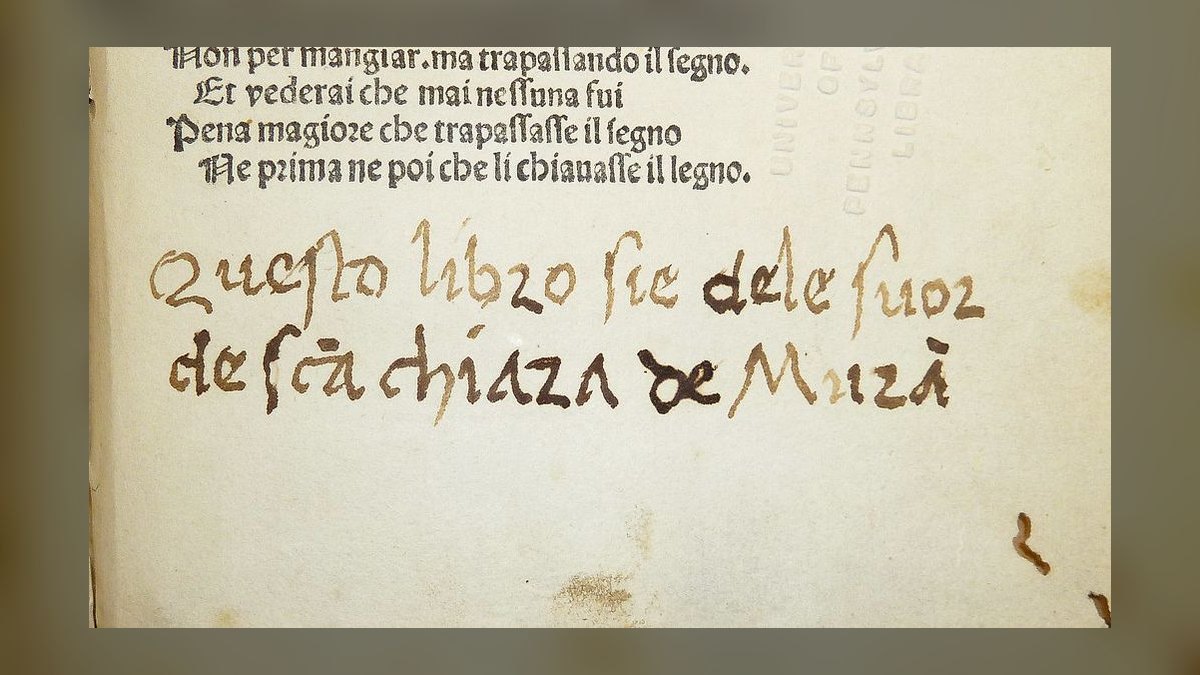 Non per mangiar.ma trapaſſando il ſegno.
Et vederai che mai neſſuna fui
Pena magiore che trapaſſaſſe il ſegno
Ne prima ne poi che li chiavaſſe il legno.
Queſto libro ſie dele ſuor
de ſcā chiara de Murā
UNIVER
OF
PENNSYLV
LIBRA